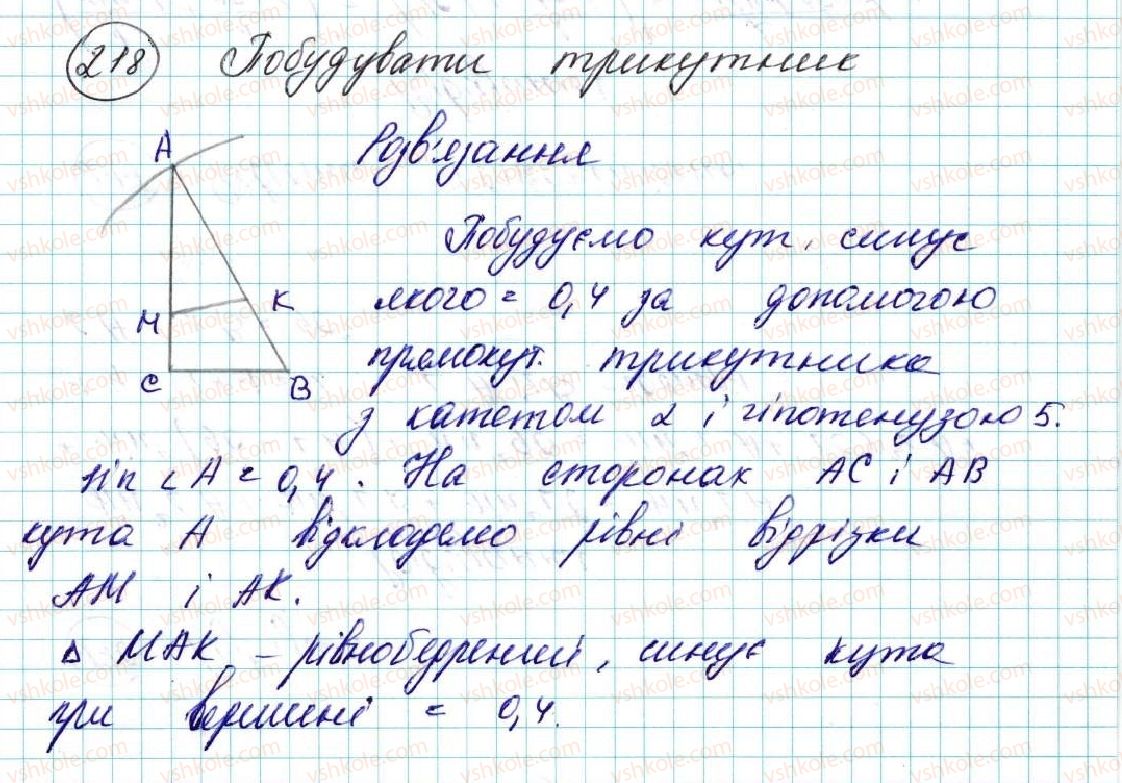 218 Побудувати трикутник
Розв'язання
A
Побудуємо кут, синус
якого = 0,4 за допомогою
K
M
прямокут. трикутника
C
B
з катетом 2 і гіпотенузою 5.
sin ∠A = 0,4. На сторонах AC і AB
кута A відкладемо рівні відрізки
AM і AK.
Δ MAK – рівнобедрений, синус кута
при вершині = 0,4.
vshkole.com